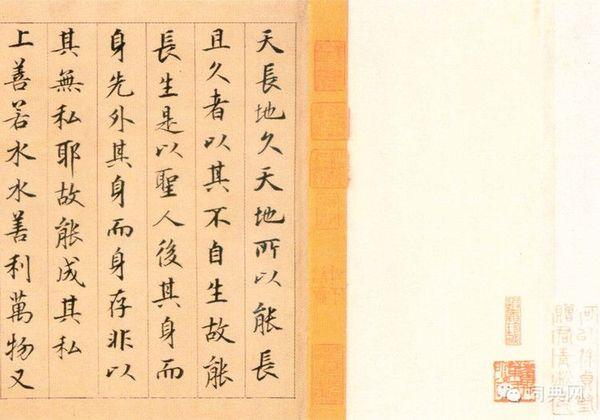 天長地久天地所以能長
且久者以其不自生故能
長生是以聖人後其身而
身先外其身而身存非以
其無私耶故能成其私
上善若水水善利萬物又
词典网